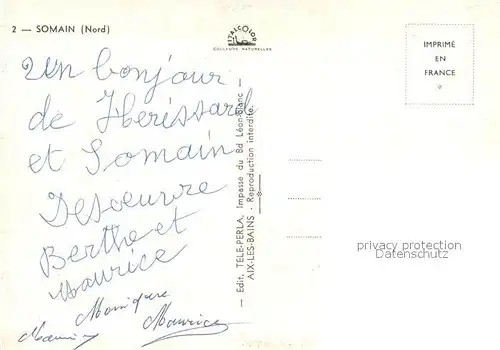 2 — SOMAIN (Nord)
ITALCOLOR
COULEURS NATURELLES
IMPRIMÉ
EN
FRANCE
Un bonjour
de
et Somain
Desoeuvre
Berthe et
Maurice
Monique
Maurice
— Edit. TELE-PERLA, Impasse du Bd Léon-Blanc —
AIX-LES-BAINS - Reproduction interdite.
privacy protection
Datenschutz